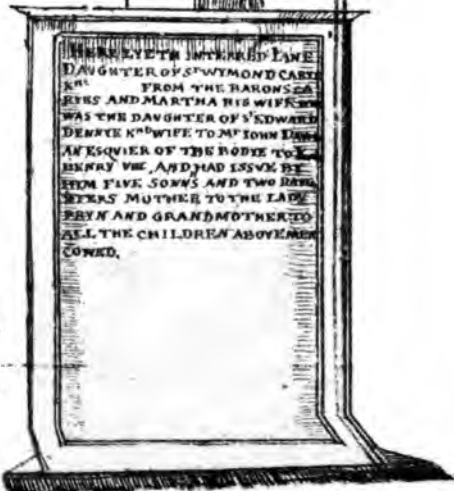 HERE LYETH INTERRED IANE
DAUGHTER OF Sᴿ WYMOND CARY
Kᴺᵀ FROM THE BARONS CA
RYES AND MARTHA HIS WIFE
WAS THE DAUGHTER OF Sᴿ EDWARD
DENNYE Kᴺᵀ WIFE TO Mᴿ IOHN
AN ESQVIER OF THE BODYE TO
HENRY VIII. AND HAD ISSVE BY
HIM FIVE SONNS AND TWO DAVG
TERS MOTHER TO THE LADY
PRYN AND GRANDMOTHER TO
ALL THE CHILDREN ABOVE MEN
CONED.